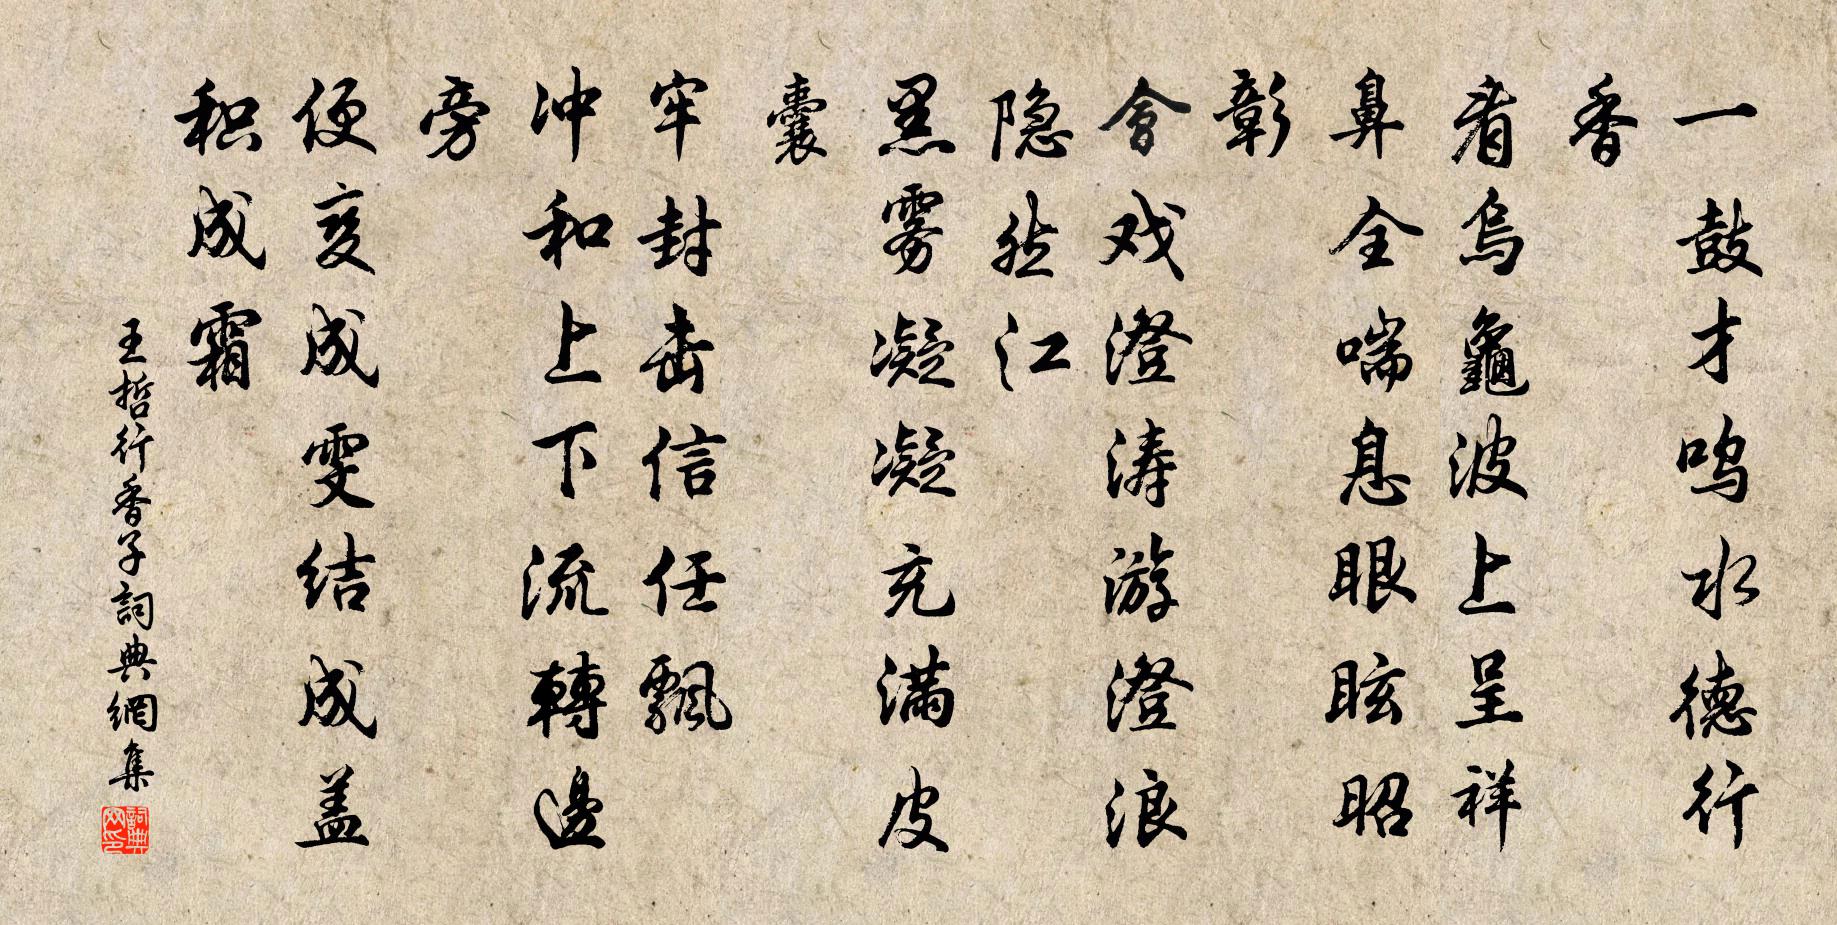 一鼓才鸣水德行
香
看乌龜波上呈祥
鼻全喘息眼眩昭
彰
會戏澄涛游澄浪
隐然江
黑雾凝凝充满皮
囊
牢封固信任飄
冲和上下流轉邊
旁
便变成雯结成盖
积成霜
王哲行香子詞典網集